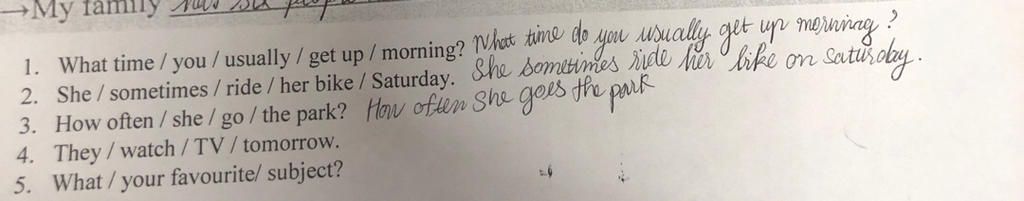 →My family has six people
1. What time / you / usually / get up / morning? What time do you usually get up morning?
2. She / sometimes / ride / her bike / Saturday. She sometimes ride her bike on Saturday.
3. How often / she / go / the park? How often she goes the park
4. They / watch / TV / tomorrow.
5. What / your favourite/ subject?